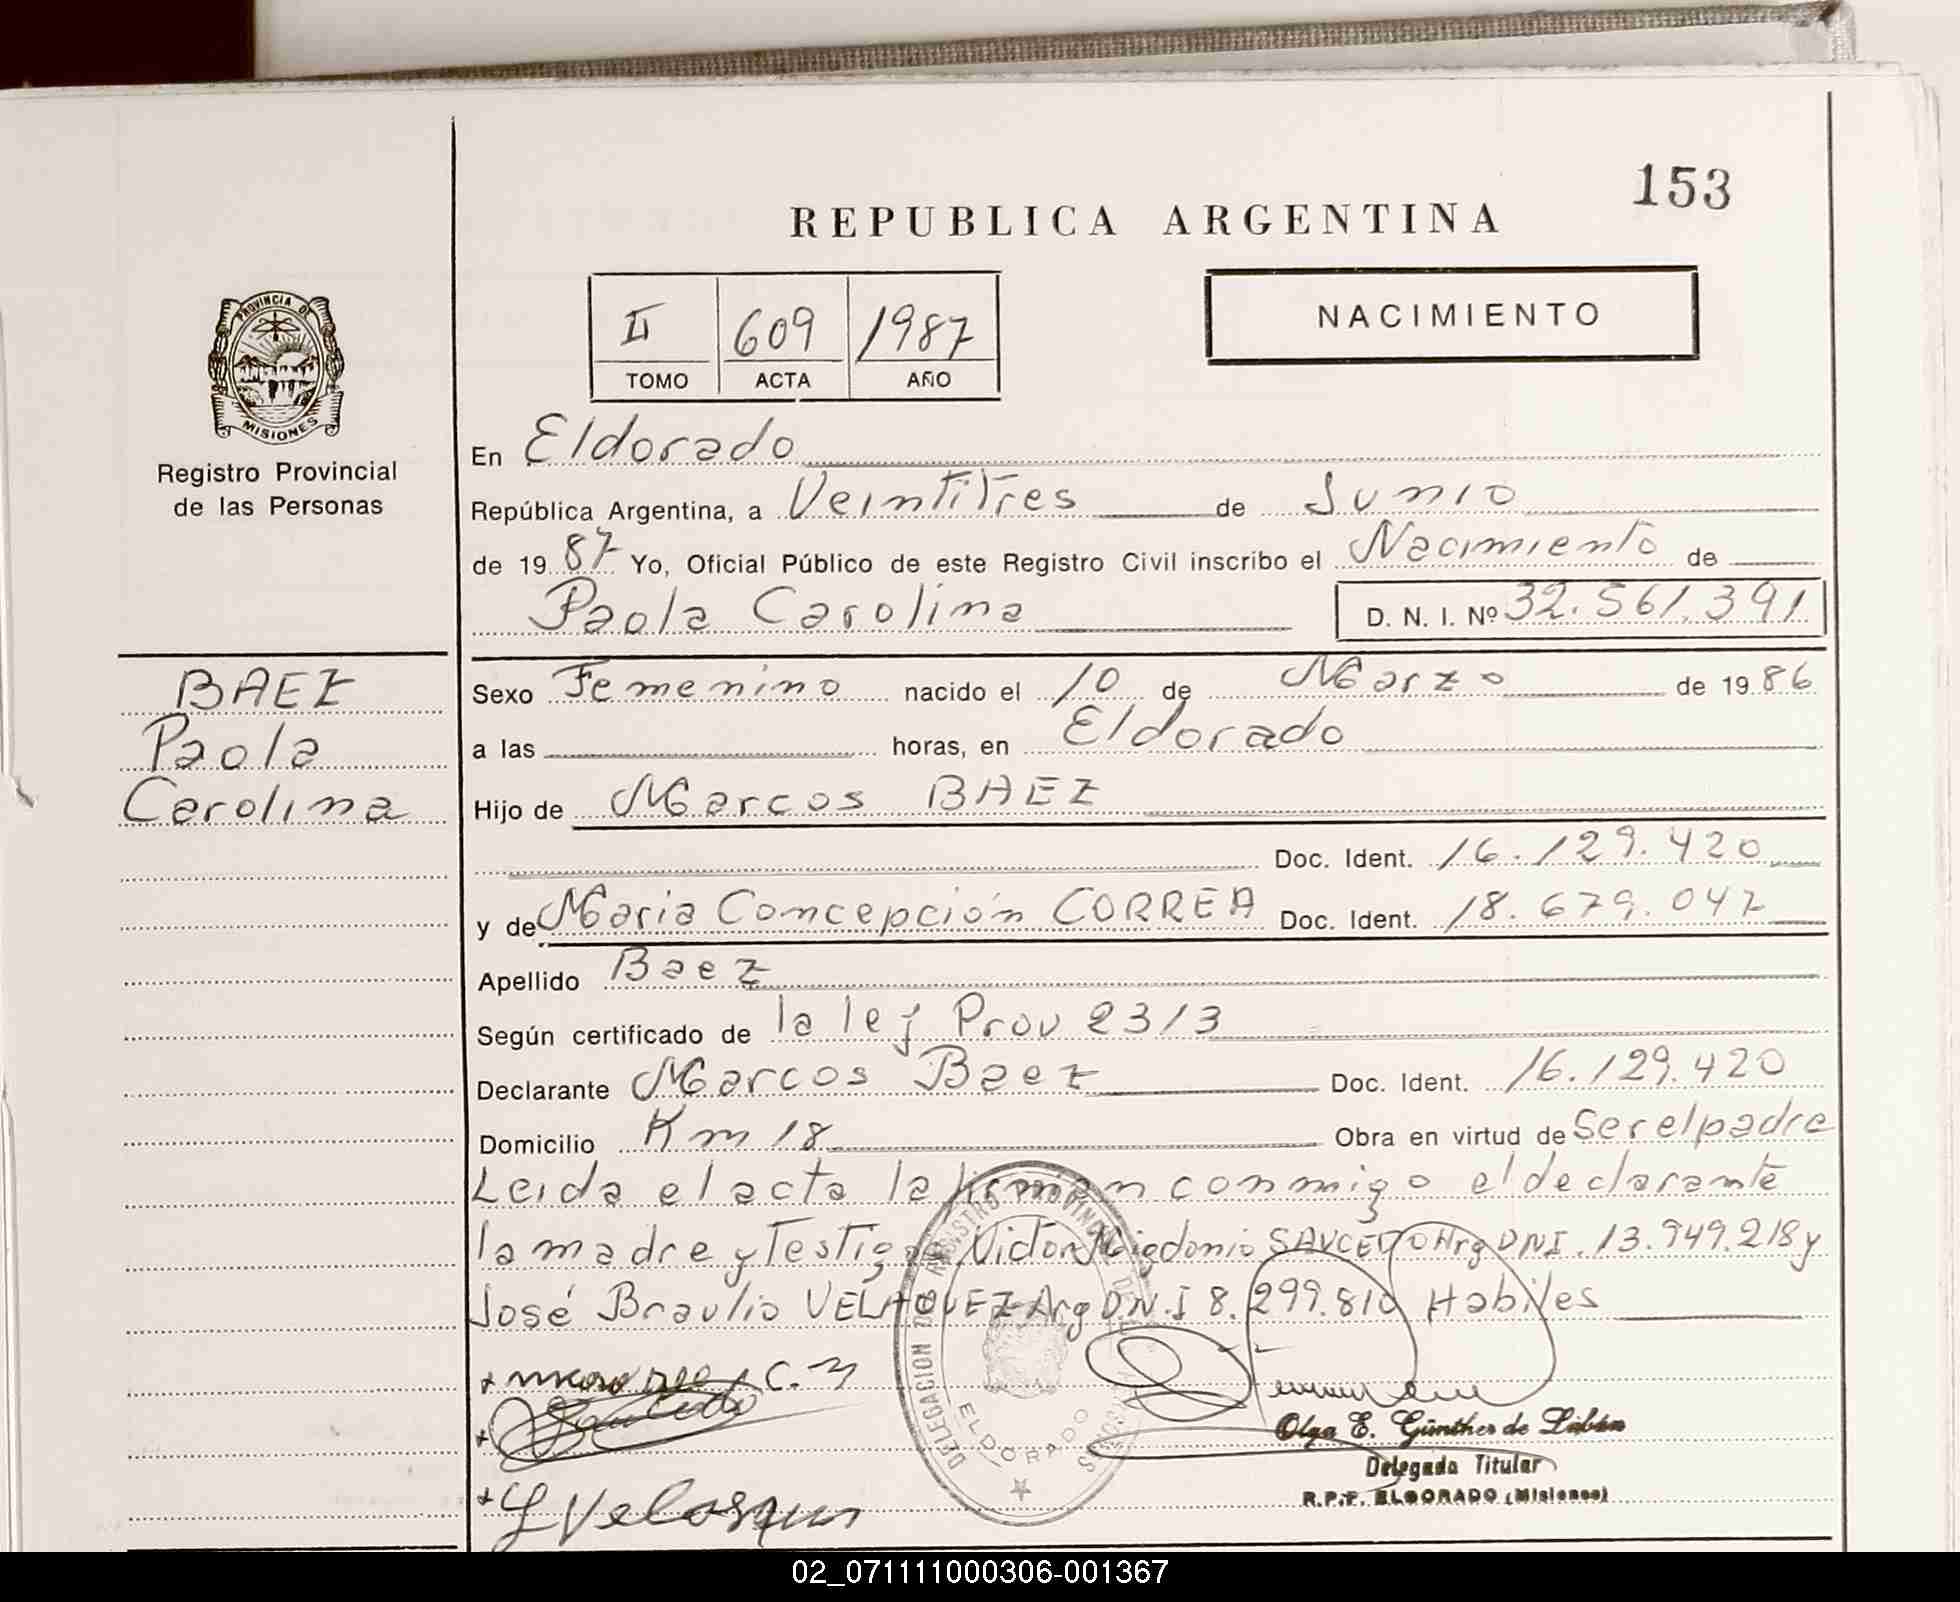 153
REPUBLICA ARGENTINA
II 609 1987
TOMO ACTA AÑO
NACIMIENTO
PROVINCIA DE
MISIONES
Registro Provincial
de las Personas
BAEZ
Paola
Carolina
En Eldorado
República Argentina, a Veintitres de Junio
de 1987 Yo, Oficial Público de este Registro Civil inscribo el Nacimiento de
Paola Carolina D. N. I. Nº 32.561.391
Sexo Femenino nacido el 10 de Marzo de 1986
a las horas, en Eldorado
Hijo de Marcos BAEZ
Doc. Ident. 16.129.420
y de Maria Concepción CORREA Doc. Ident. 18.679.047
Apellido Baez
Según certificado de la ley Prov 2313
Declarante Marcos Baez Doc. Ident. 16.129.420
Domicilio Km 18 Obra en virtud de Ser el padre
Leida el acta la firman conmigo el declarante
la madre y Testigos Victor SAUCEDO Arg DNI. 13.949.218 y
José Braulio VELAQUEZ Arg D.N.I 8.299.810 Habiles
C. M
DELEGACION DEL REGISTRO PROVINCIAL DE LAS
ELDORADO
Olga E. Günther de Labán
Delegada Titular
R.P.P. ELDORADO (Misiones)
02_071111000306-001367